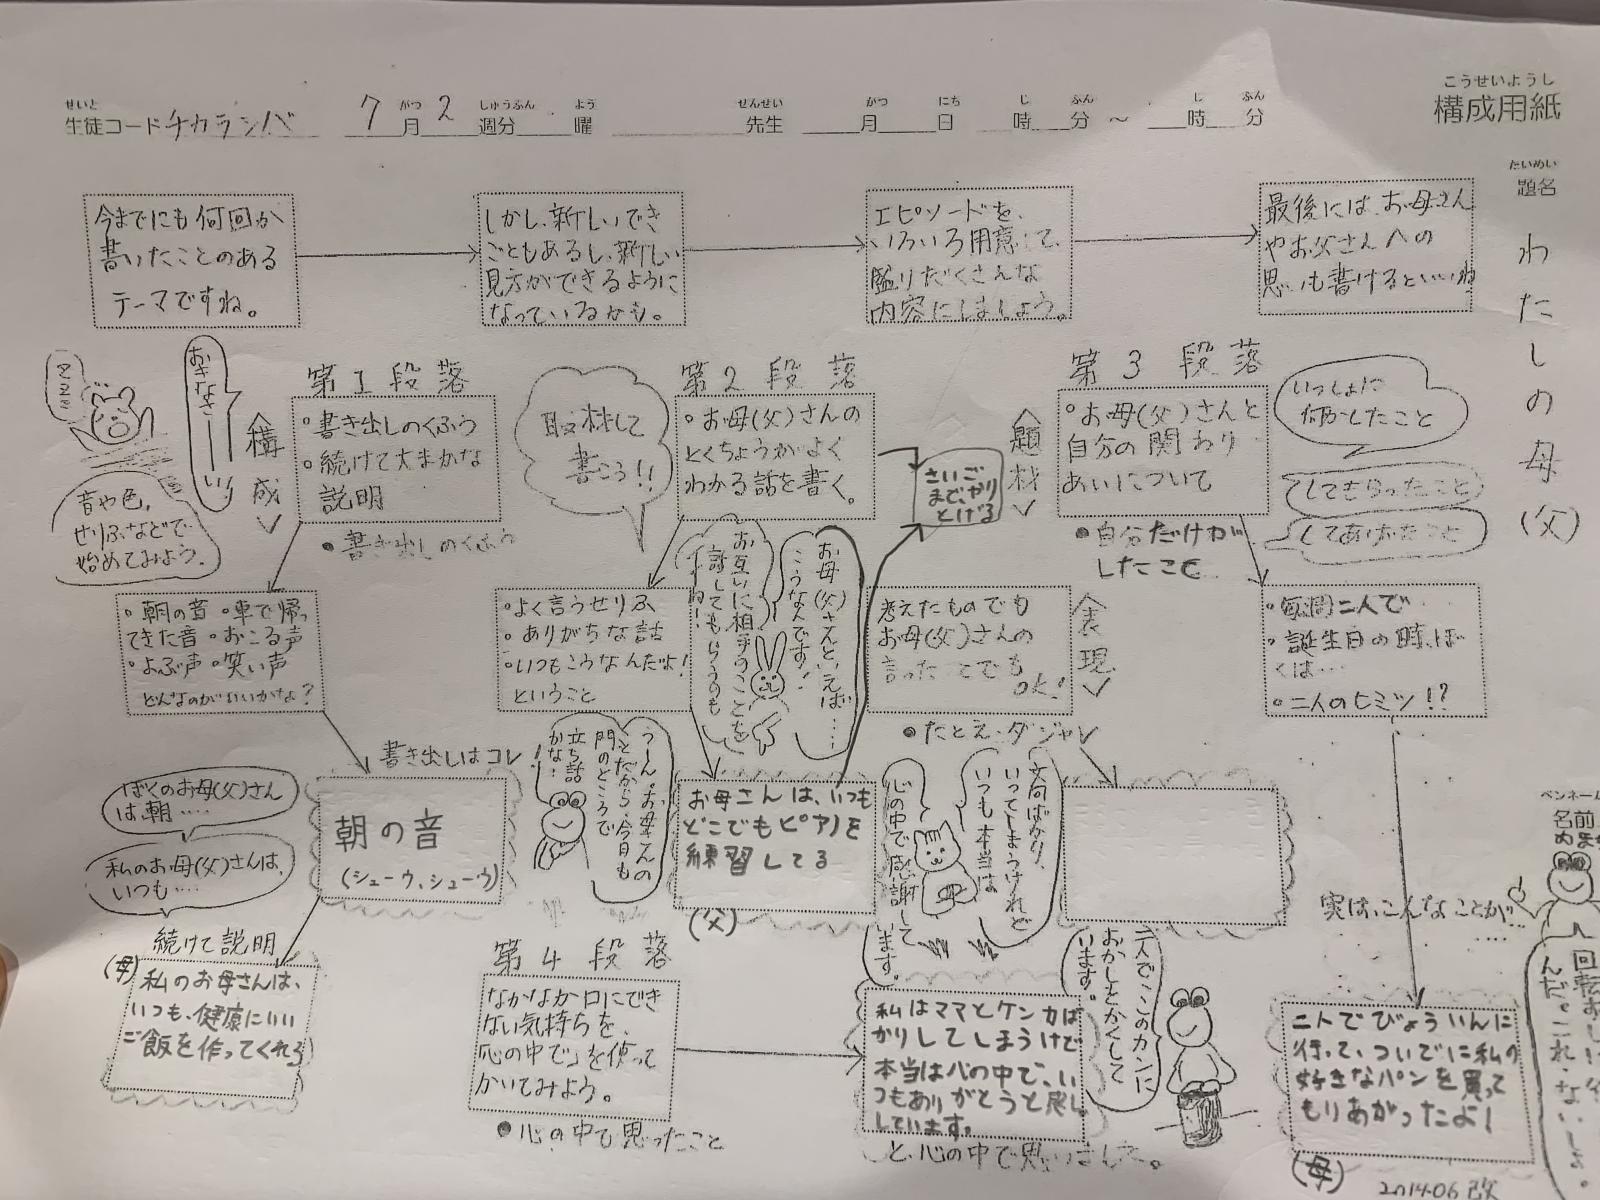 こうせいようし
構成用紙
せいと
生徒コード チカラシバ
がつ しゅうぶん よう
7月2週分 曜
せんせい がつ にち じ ふん じ ふん
先生 月 日 時 分 ～ 時 分
たいめい
題名
わたしの母(父)
今までにも何回か
書いたことのある
テーマですね。
しかし、新しいでき
ごともあるし、新しい
見方ができるように
なっているかも。
エピソードを、
いろいろ用意して、
盛りだくさんな
内容にしましょう。
最後には、お母さん
やお父さんへの
思いも書けるといいね
おきなさーーい
〈構成〉
音や色、
せりふなどで
始めてみよう。
第1段落
・書き出しのくふう
・続けて大まかな
説明
●書き出しのくふう
取材して
書こう!!
第2段落
・お母(父)さんの
とくちょうがよく
わかる話を書く。
さいご
までやり
とげる
〈題材〉
第3段落
・お母(父)さんと
自分の関わり
あいについて
●自分だけが
したこと
いっしょに
何かしたこと
してもらったこと
してあげたこと
・朝の音 ・車で帰っ
てきた音 ・おこる声
・よぶ声 ・笑い声
どんなのがいいかな?
・よく言うせりふ
・ありがちな話
・いつもこうなんだよ!
ということ
お互いに相手のことを
話してもらうのも
いいね!
お母(父)さんといえば……
こうなんです!
考えたものでも
お母(父)さんの
言ったことでも
OK!
〈表現〉
●たとえ・ダジャレ
・毎週二人で…
・誕生日の時、ぼ
くは…
・二人のヒミツ!?
書き出しはコレ!
朝の音
(シューウ、シューウ)
ぼくのお母(父)さん
は、朝……
私のお母(父)さんは、
いつも……
続けて説明
(母)
私のお母さんは、
いつも、健康にいい
ご飯を作ってくれる
うーん。お母さんの
ことだから、今日も
門のところで
立ち話
かな…
お母さんは、いつも
どこでもピアノを
練習してる
(父)
文句ばかり、
いってしまうけれど
いつも本当は
心の中で感謝して
います。
第4段落
なかなか口にでき
ない気持ちを、
「心の中で」を使って
かいてみよう。
●心の中で思ったこと
私はママとケンカば
かりしてしまうけど
本当は心の中で、い
つもありがとうと
しています。
と、心の中で思いました。
二人でこのカンに
おかしをかくして
います。
実は、こんなことが…
二人でびょういんに
行って、ついでに私の
好きなパンを買って
もりあがったよ!
(母)
ペンネーム
名前
2014.06改